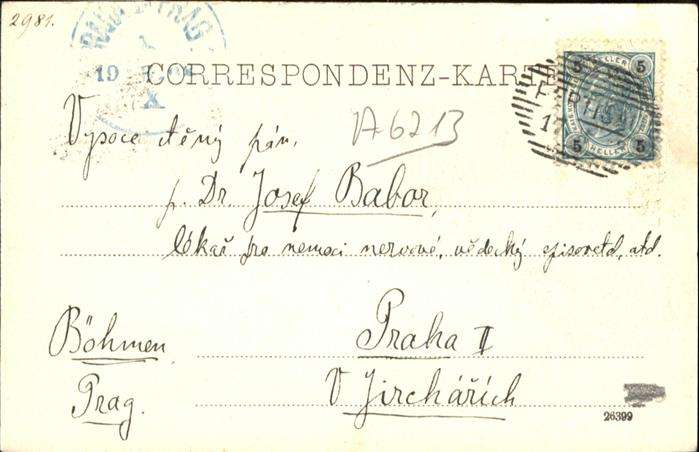 2981.
PRAG
19
X
CORRESPONDENZ-KARTE
5 HELLER 5
5 HELLER 5
Vysoce ctěný pán,
IA 6213
p. Dr Josef Babor,
lékař pro nemoci nervové, vědecký spisovatel, atd.
Böhmen
Praha II
Prag.
V Jirchářích
26399